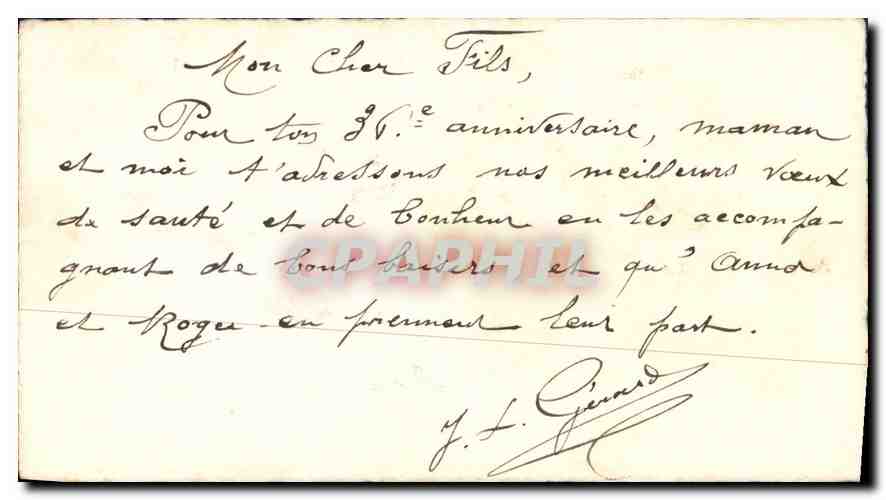 Mon Cher Fils,
Pour ton 36.e anniversaire, maman
et moi t'adressons nos meilleurs vœux
de santé et de bonheur en les accompa-
gnant de bons baisers et qu'Anna
et Roger en prennent leur part.
J. L. Gérard
CPAPHIL